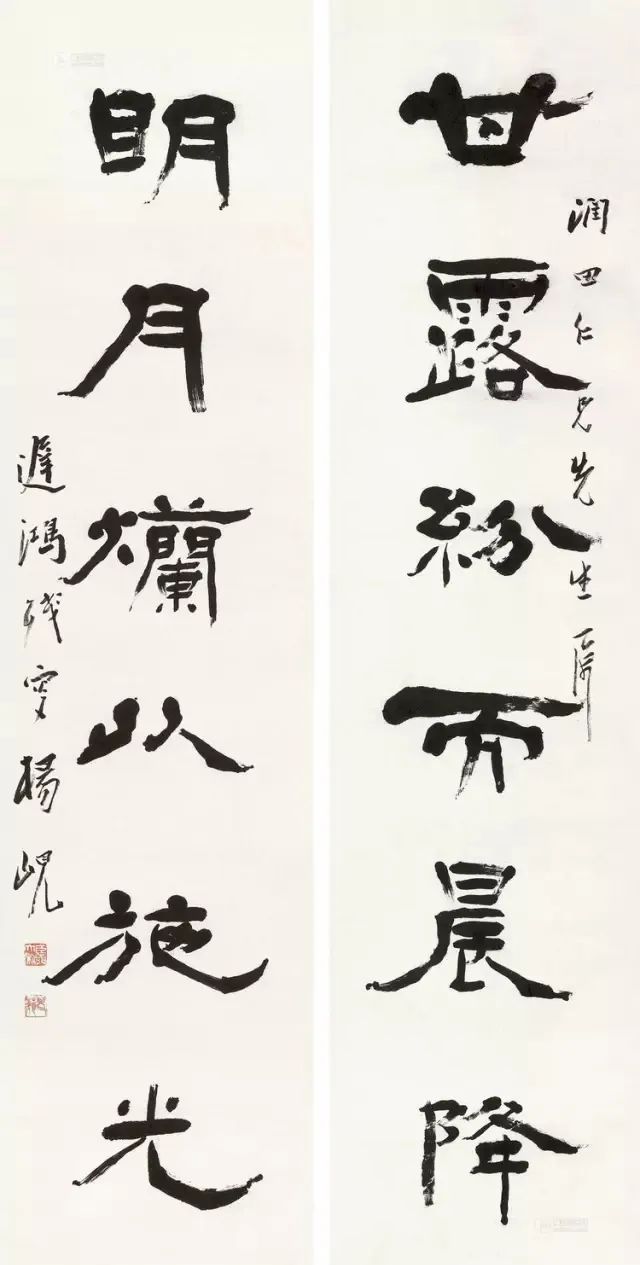 甘露紛而晨降
潤田仁兄先生屬
明月爛以施光
遲鴻殘叟楊峴